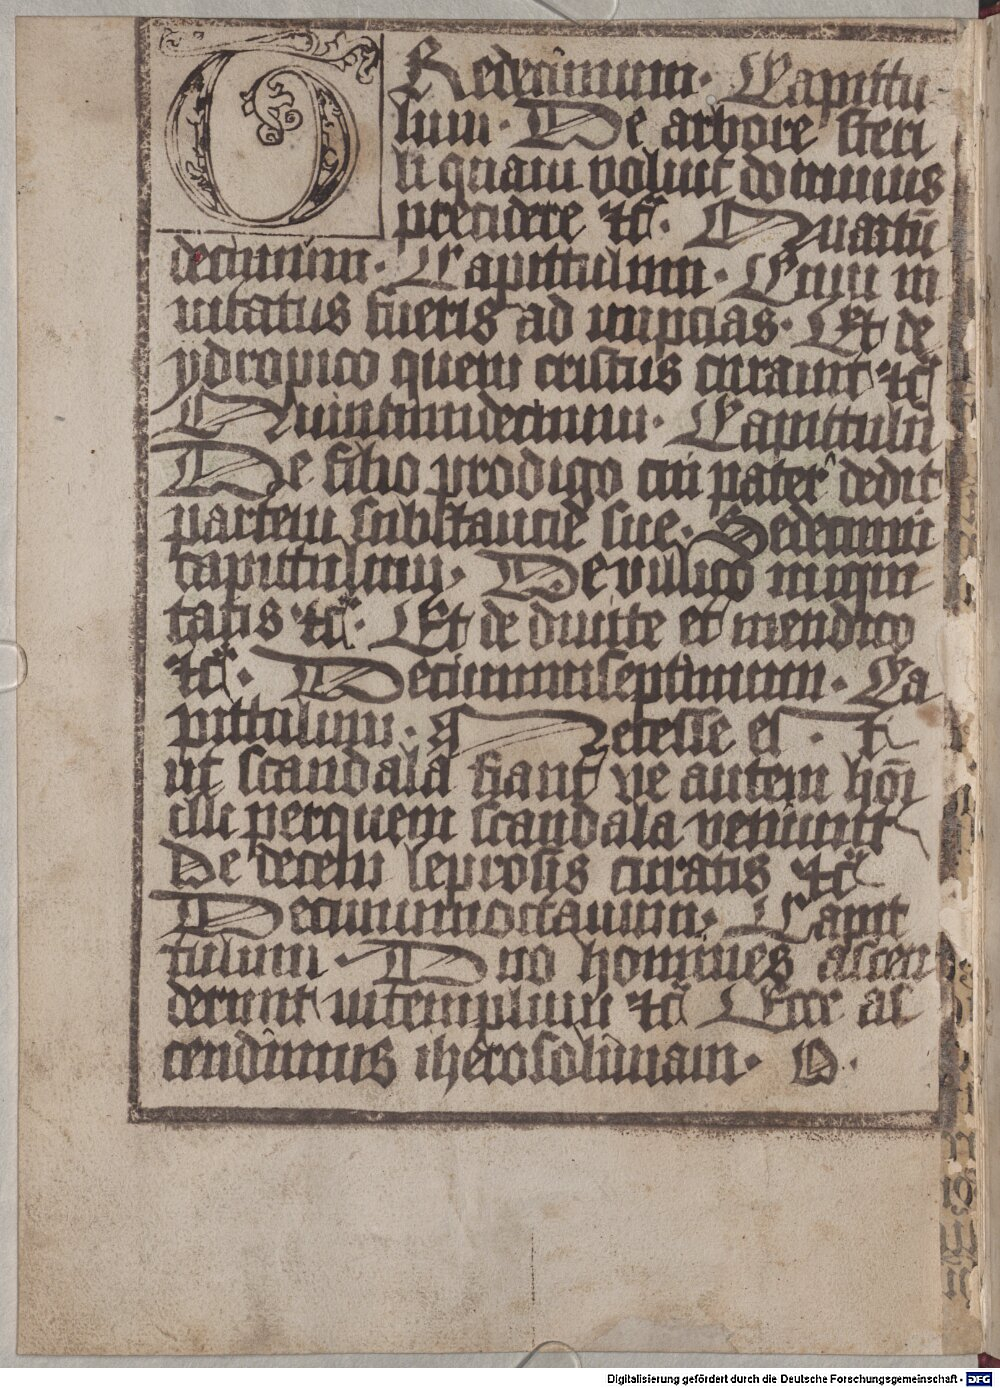 TRedecimum. Capittu
lum. De arbore steri
li quam voluit dominus
precidere &cͣ. Quartū
decimum. Capittulum. Cum in
uitatus fueris ad nupcias. Et de
ydropico quem cristus curauit &cͣ
Quintumdecimum. Capittulū
De filio prodigo cui pater dedit
partem substancie sue. Sedecimū
capittulum. De villico iniqui
tatis &cͣ. Et de diuite et mendico
&cͣ. Decimumseptimum. Ca
pittulum. Necesse est
ut scandala fiant ve autem hoī
illi perquem scandala veniunt
De decem leprosis curatis &cͣ
Decimumoctauum. Capit
tulum. Duo homines ascen
derunt intemplum &cͣ Ecce as
cendimus iherosolimam. D.
Digitalisierung gefördert durch die Deutsche Forschungsgemeinschaft - DFG